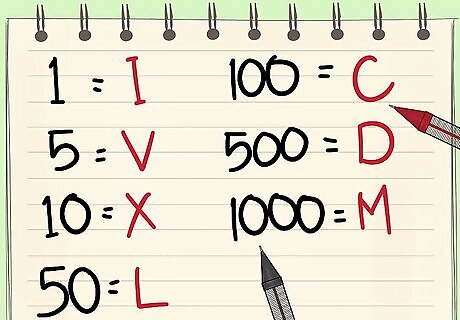 1 = I
5 = V
10 = X
50 = L
100 = C
500 = D
1000 = M